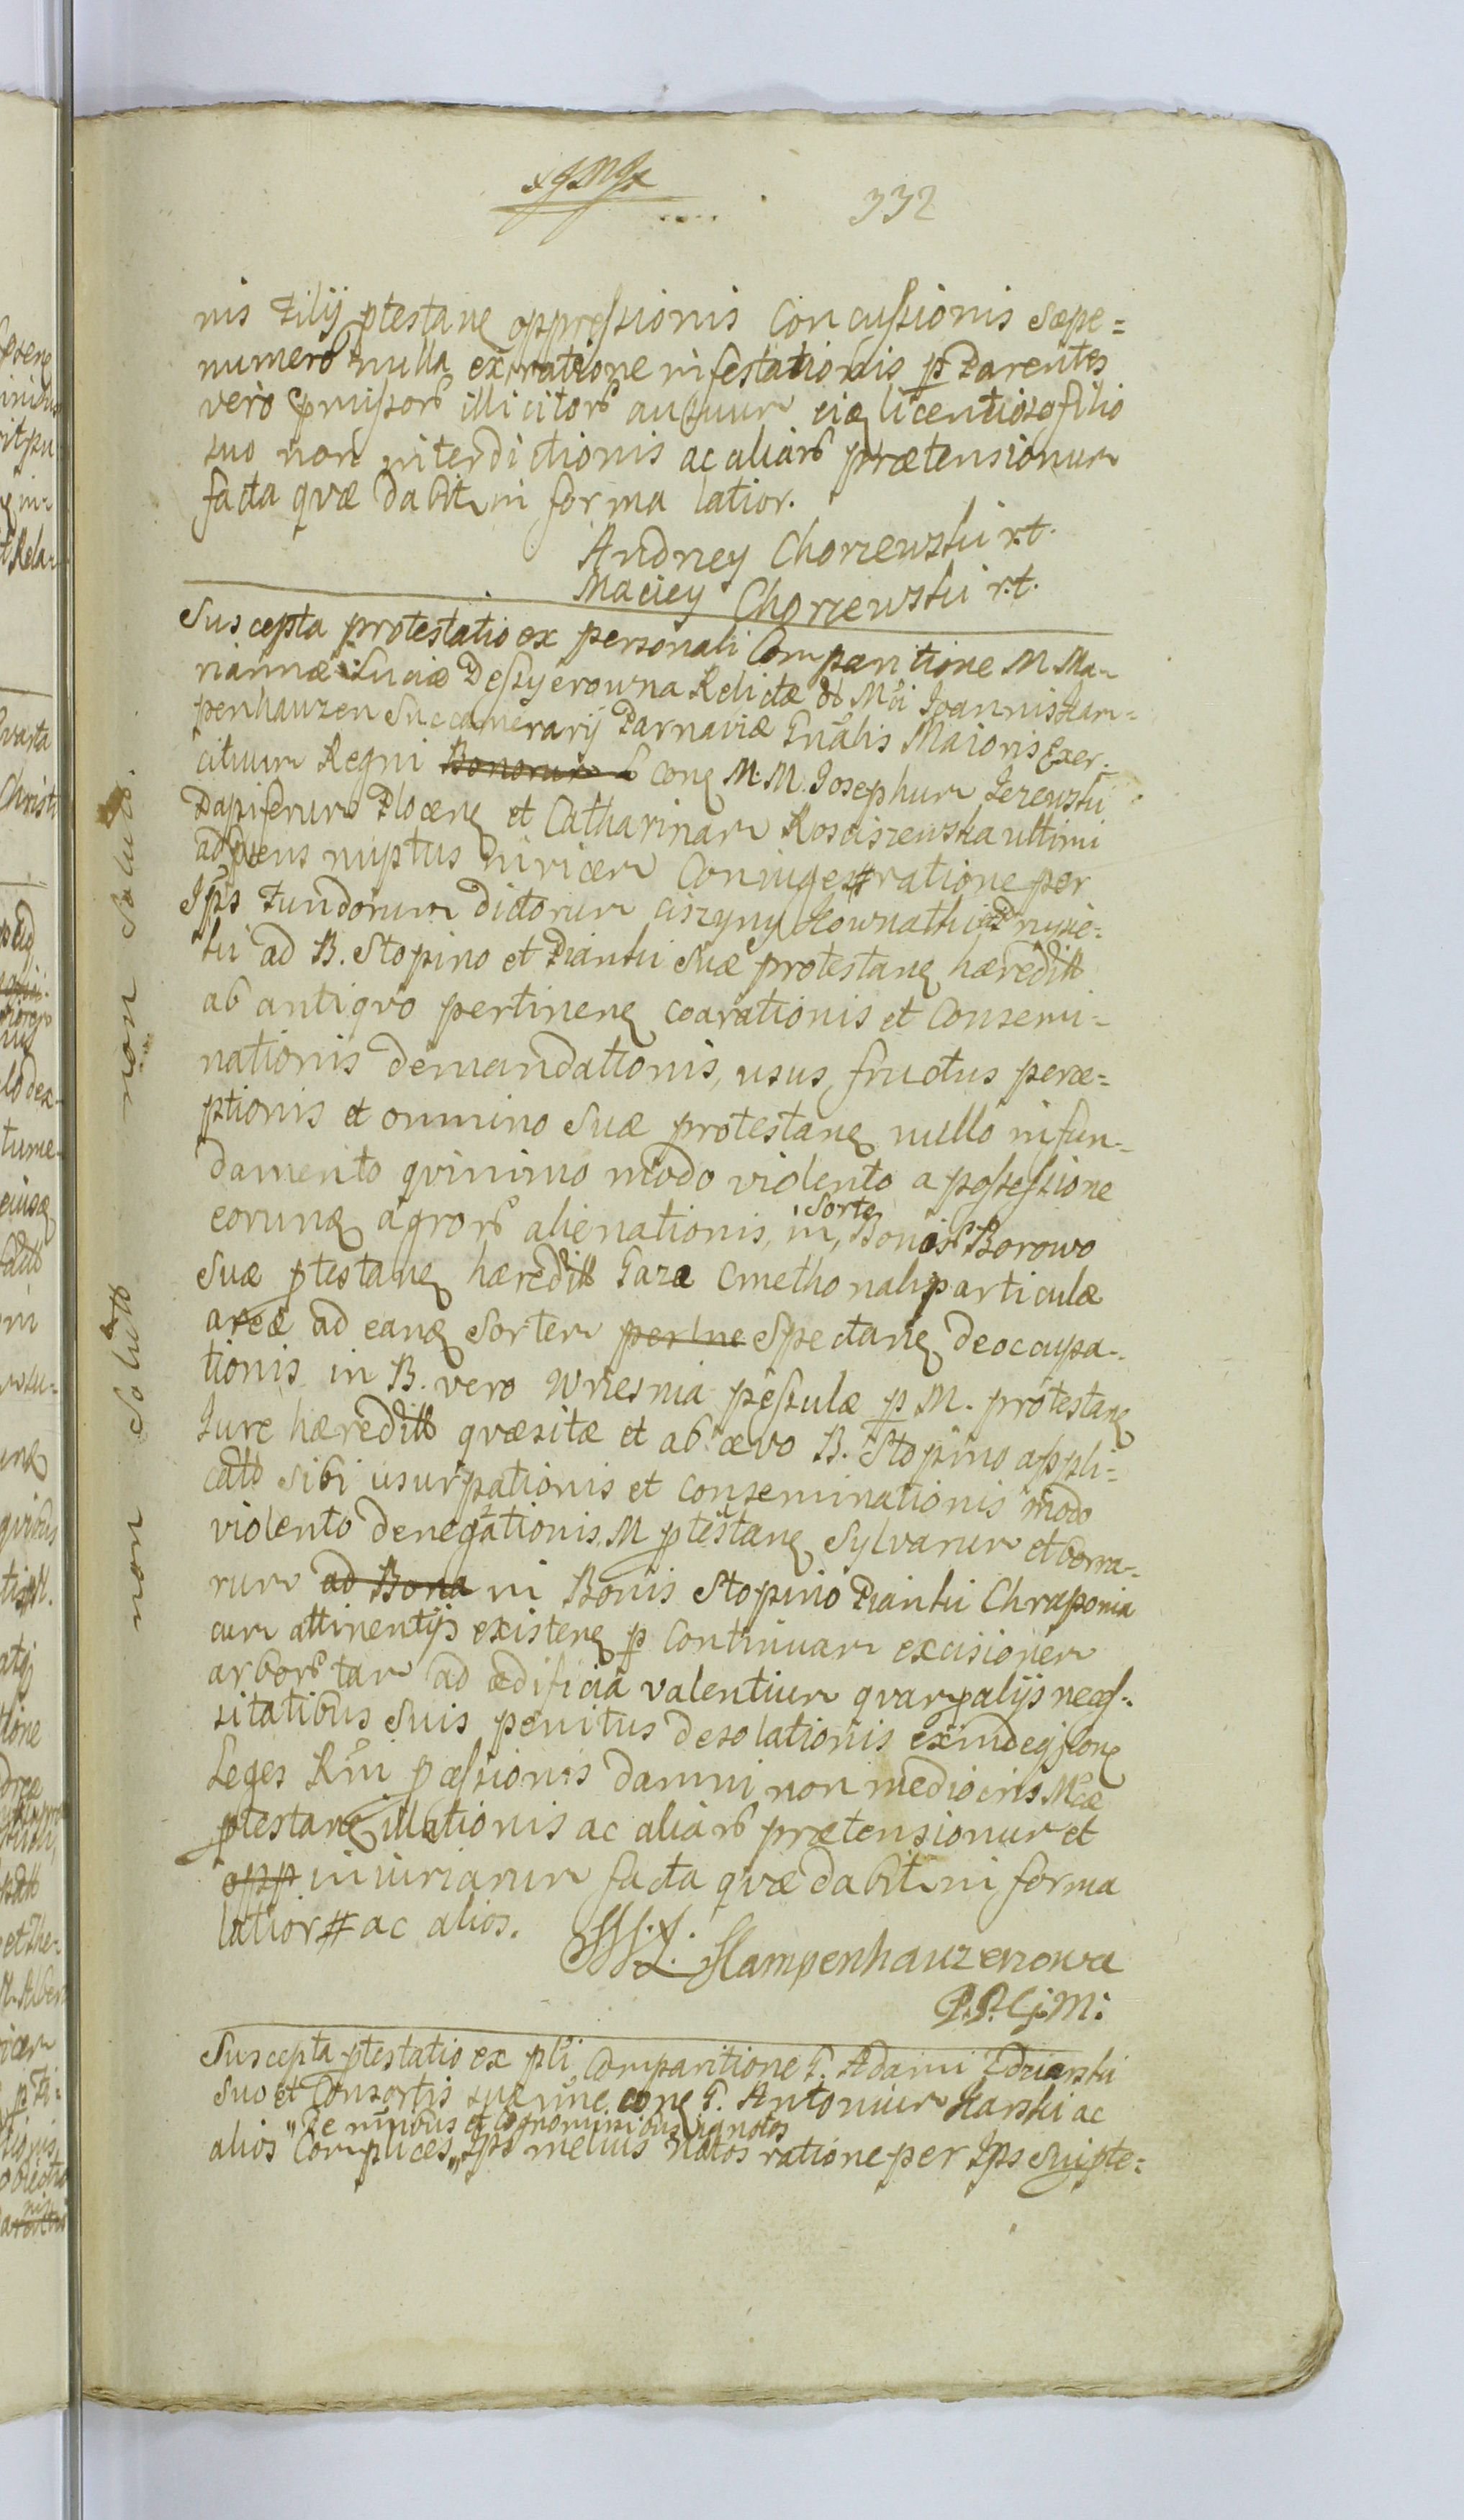 332
nis Filij ptestang oppressionis Concussionis sæpe=
numero nulla ex ratione infestationis p Parentes
vero pmissor illicitor ausuum eiq licentioso filio
suo non interdictionis ac aliar prætensionum
facta qvæ dabit in forma latior.
Andrzey Chorzewski r.t.
Maciey Chorzewski r.t.
Suscepta protestatio ex personali Comparitione M Ma-
riannæ Luciæ Deszyerowna Relictæ M
penhauzen Succamerarij Parnaviæ Gnalis Maioris Exer-
cituum Regni Bonorum cong M. M. Josephum Jezewski
Dapiferum Plocen et Catharinam Kosciszewska ultimi
ad pens nuptus Invicem Coniuges # ratione per
Ips Fundorum dictorum
ski ad B. Stopino et Pianki Suæ protestang hæredit
ab antiqvo pertineng coarationis et Consemi-
nationis demandationis, usus, fructus perce=
ptionis et omnino Suæ protestang nullo in fun-
damento qvinimo modo violento a possessione
eorunq agror alienationis, in Sorte Bonis Borowo
Suæ ptestang hæredit Gaza Cmethonalis particulæ
areæ ad eang Sortem pertine Spectang deoccupa-
tionis in B. vero Wriesnia pessulæ p M. protestang
Jure hæredit qvæsitæ et ab ævo B. Stopino appli=
cato sibi usurpationis et conseminationis modo
violento denegationis M ptestang Sylvarum et borra-
rum ad Bona in Bonis Stopino Pianki Chraponia
cum attinentijs existeng p Continuam excisionem
arbor tam ad ædificia valentium qvam p alijs neces-
sitatibus Suis penitus desolationis exindeq
Leges Rni pcessionis damni non mediocris Mcæ
ptestang illationis ac aliar prætensionum et
opp iniuriarum facta qvæ dabit in forma
latior # ac alios.
Hampenhauzenowa
P.P.G.M:
Suscepta ptestatio ex pli Comparitione G. Adami Zdziarski
Suo et Consortis suæ nne cong G. Antonium Karski ac
De nnibus et Cognominibus ignotos
alios Complices, Ips melius Notos ratione per Ips
non Solut
non Solut.